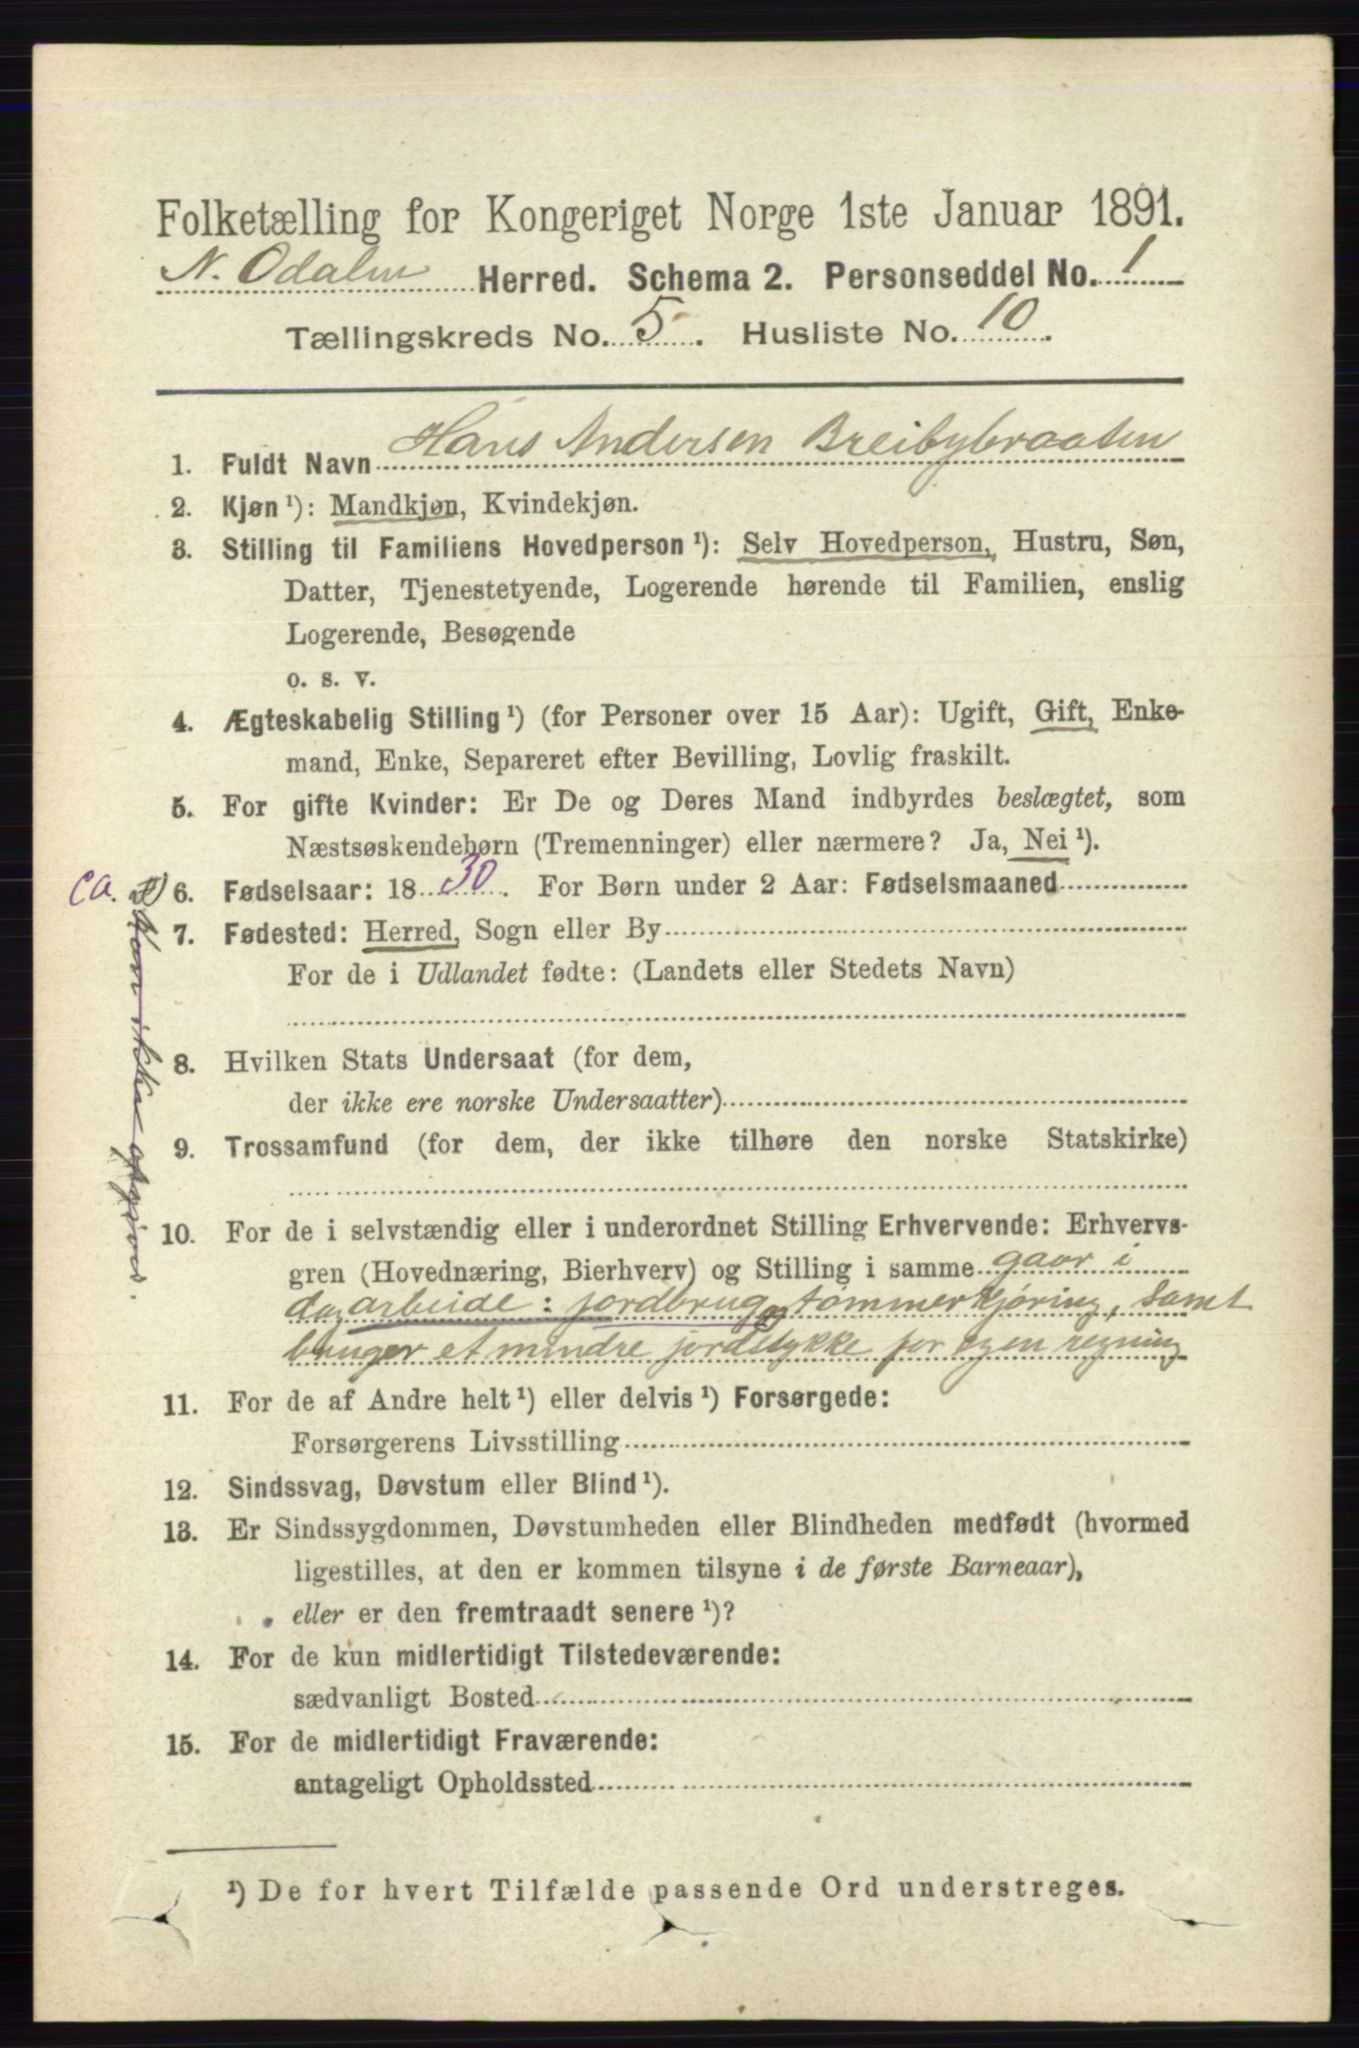 Folketælling for Kongeriget Norge 1ste Januar 1891.
N. Odalen Herred. Schema 2. Personseddel No. 1
Tællingskreds No. 5. Husliste No. 10.
1. Fuldt Navn Hans Andersen Breibybraaten
2. Kjøn ¹): Mandkjøn, Kvindekjøn.
3. Stilling til Familiens Hovedperson ¹): Selv Hovedperson, Hustru, Søn,
Datter, Tjenestetyende, Logerende hørende til Familien, enslig
Logerende, Besøgende
o. s. v.
4. Ægteskabelig Stilling ¹) (for Personer over 15 Aar): Ugift, Gift, Enke-
mand, Enke, Separeret efter Bevilling, Lovlig fraskilt.
5. For gifte Kvinder: Er De og Deres Mand indbyrdes beslægtet, som
Næstsøskendebørn (Tremenninger) eller nærmere? Ja, Nei ¹).
ca. 6. Fødselsaar: 1830. For Børn under 2 Aar: Fødselsmaaned
7. Fødested: Herred, Sogn eller By
For de i Udlandet fødte: (Landets eller Stedets Navn)
8. Hvilken Stats Undersaat (for dem,
der ikke ere norske Undersaatter)
9. Trossamfund (for dem, der ikke tilhøre den norske Statskirke)
10. For de i selvstændig eller i underordnet Stilling Erhvervende: Erhvervs-
gren (Hovednæring, Bierhverv) og Stilling i samme gaar i
dagarbeide: jordbrug og tømmerkjøring, samt
bruger et mindre jordstykke for egen regning
11. For de af Andre helt ¹) eller delvis ¹) Forsørgede:
Forsørgerens Livsstilling
12. Sindssvag, Døvstum eller Blind ¹).
13. Er Sindssygdommen, Døvstumheden eller Blindheden medfødt (hvormed
ligestilles, at den er kommen tilsyne i de første Barneaar),
eller er den fremtraadt senere ¹)?
14. For de kun midlertidigt Tilstedeværende:
sædvanligt Bosted
15. For de midlertidigt Fraværende:
antageligt Opholdssted
¹) De for hvert Tilfælde passende Ord understreges.
Kan ikke opgives.